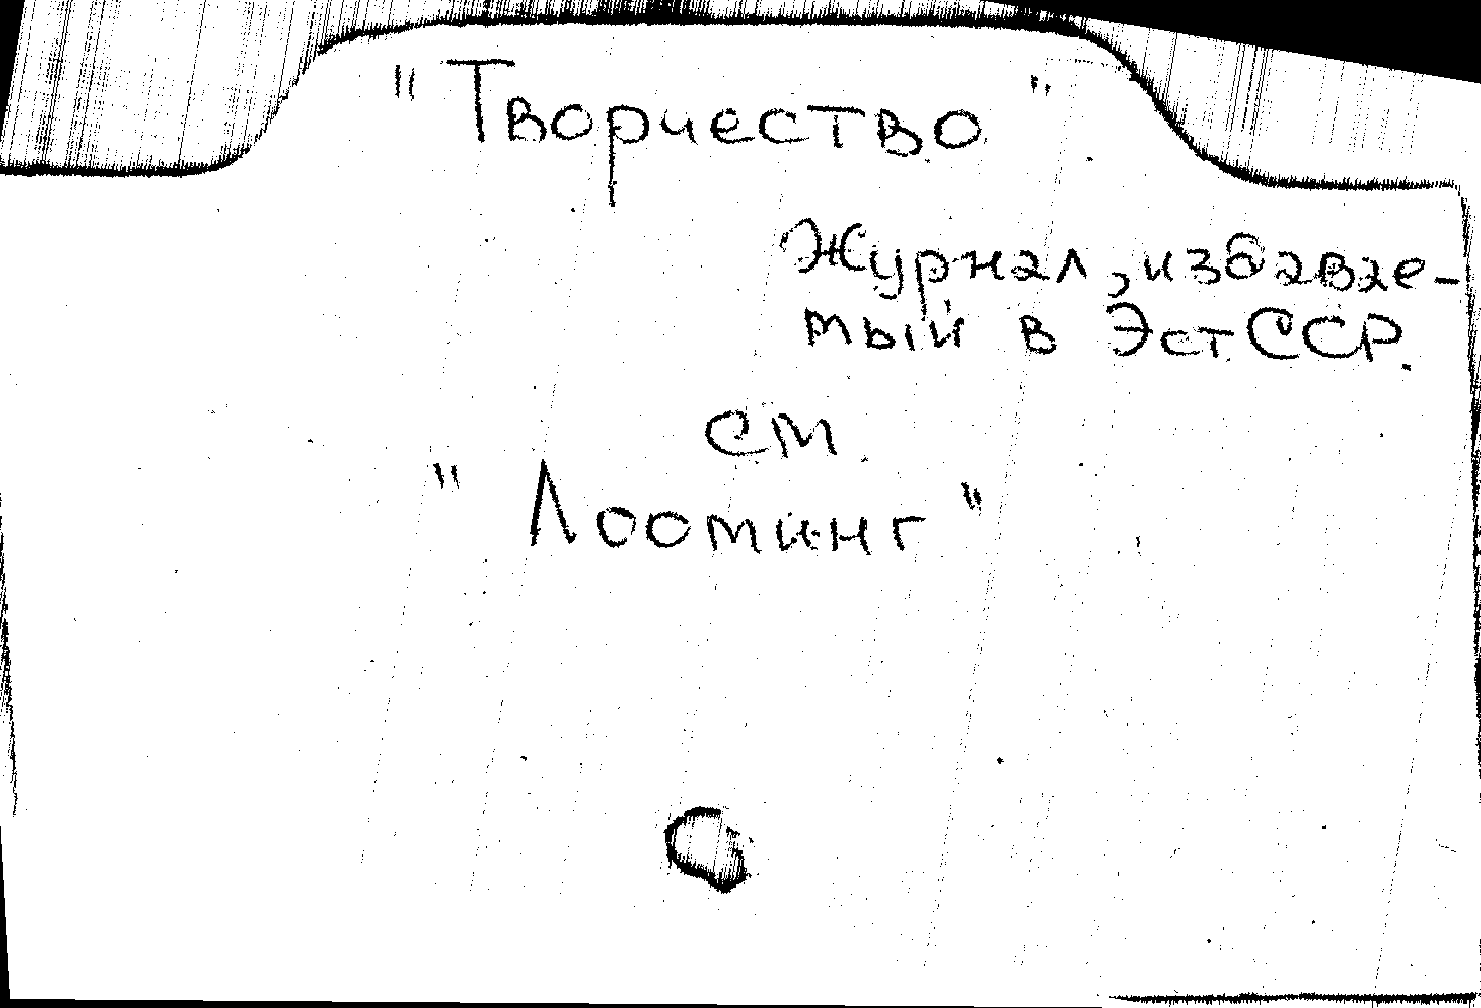 "Творчество"
Журнал, издавае-
мый в Эст.ССР.
см.
"Лооминг"